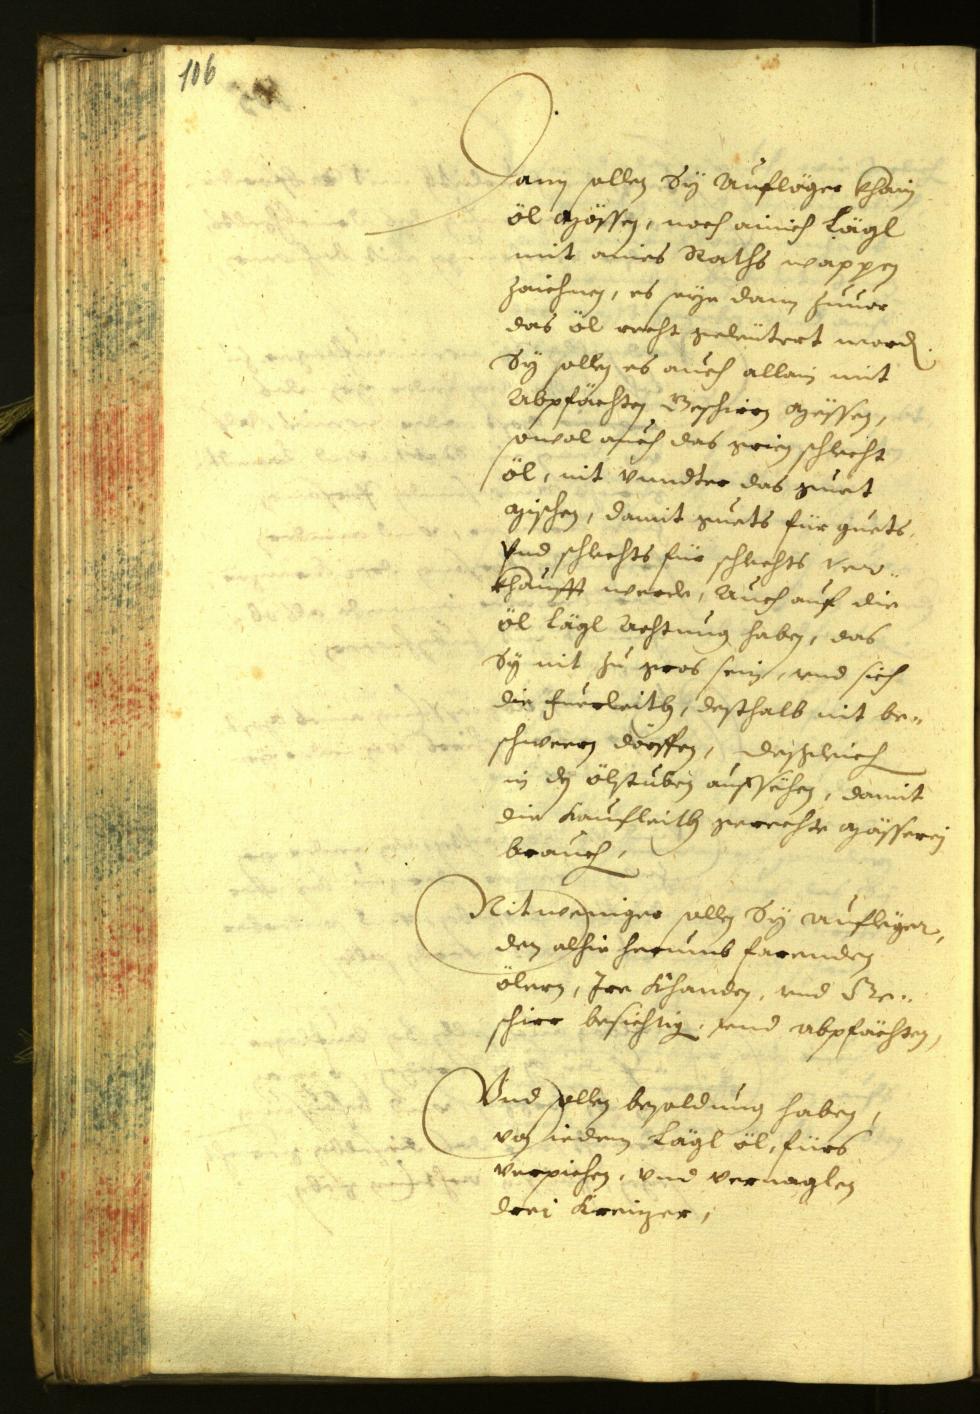 106
Dann sollen Sÿ Aufleger khain
öl mössen, noch ainich Lägl
mit aines Raths wappen
zaichnen, es seÿe dann zuuor
das öl recht geleütert word.
Sÿ sollen es auch allain mit
Abpfächten Geschirrn messen,
sowol auch das grien schlecht
öl, nit vundter das guet
mischen, damit guets für guets,
Vnd schlechts für schlechts ver-
khaufft werde, Auch auf die
öl Lägl Achtung haben, das
Sÿ nit zu gros sein, vnd sich
die Fuerleith, desthalb nit be-
schwern dörffen, Desgleich
in der ölstuben aufsehen, damit
die Kaufleith gerechte mässerej
brauch,
Nitweniger sollen Sÿ Aufleger,
den alhie herumb farenden
ölern, Jre Khanden, vnd Ge-
schirr besichtig, vnd abpfächten,
Vnd sollen besoldung haben,
von iedem Lägl öl, fürs
verpichen, vnd vernaglen
drei Kreizer,